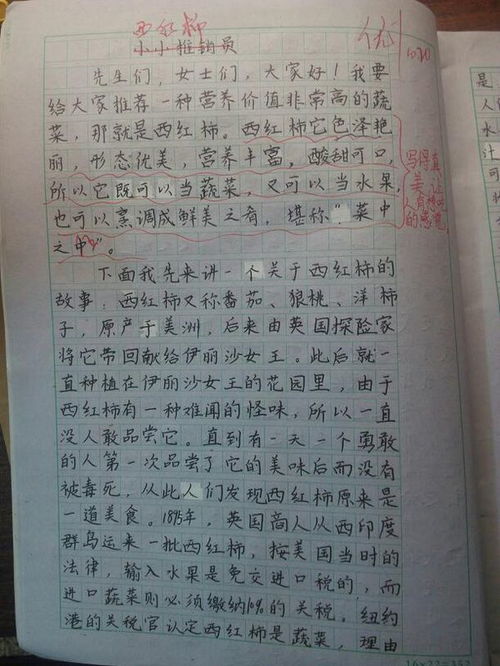 西红柿
小小推销员
优
10.10
先生们，女士们，大家好！我要
给大家推荐一种营养价值非常高的蔬
菜，那就是西红柿。西红柿它色泽艳
丽，形态优美，营养丰富，酸甜可口，
所以它既可以当蔬菜，又可以当水果，
也可以烹调成鲜美之肴，堪称“菜中
之中”。
写得真
美，让
人有种
的感觉
下面我先来讲一个关于西红柿的
故事：西红柿又称番茄、狼桃、洋柿
子，原产于美洲，后来由英国探险家
将它带回献给伊丽沙女王。此后就一
直种植在伊丽沙女王的花园里，由于
西红柿有一种难闻的怪味，所以一直
没人敢品尝它。直到有一天一个勇敢
的人第一次品尝了它的美味后而没有
被毒死，从此人们发现西红柿原来是
一道美食。1895年，英国商人从西印度
群岛运来一批西红柿，按美国当时的
法律，输入水果是免交进口税的，而
进口蔬菜则必须缴纳10%的关税。纽约
港的关税官认定西红柿是蔬菜，理由
是
人
水
汁
可